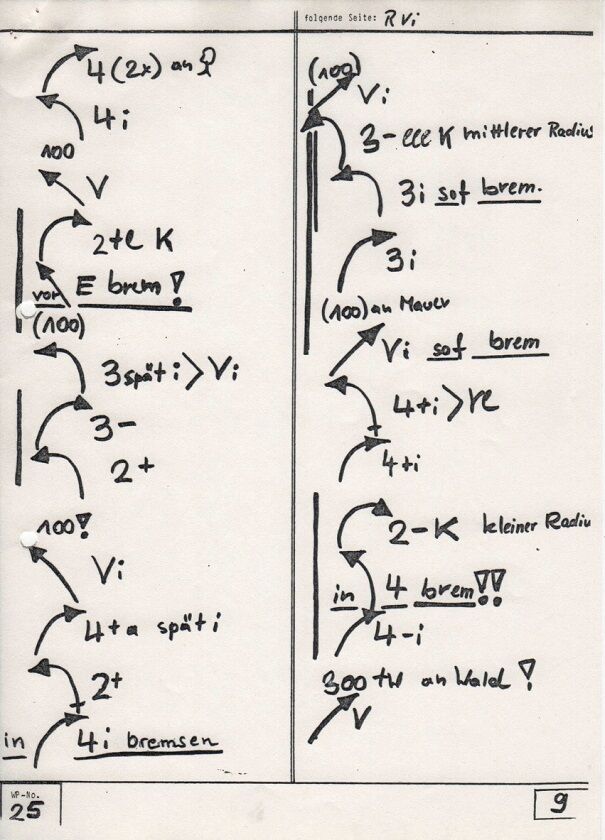 folgende Seite: R Vi
4 (2x) an
4 i
100
V
2+e K
vor E brem!
(100)
3 spät i > Vi
3-
2+
100!
Vi
4+a spät i
2+
in 4i bremsen
(100)
Vi
3- eee K mittlerer Radius
3i sof brem.
3i
(100) an Mauer
Vi sof brem
4+i >
4+i
2-K kleiner Radiu
in 4 brem!!
4-i
300 tw an Wald!
V
WP-No.
25
9